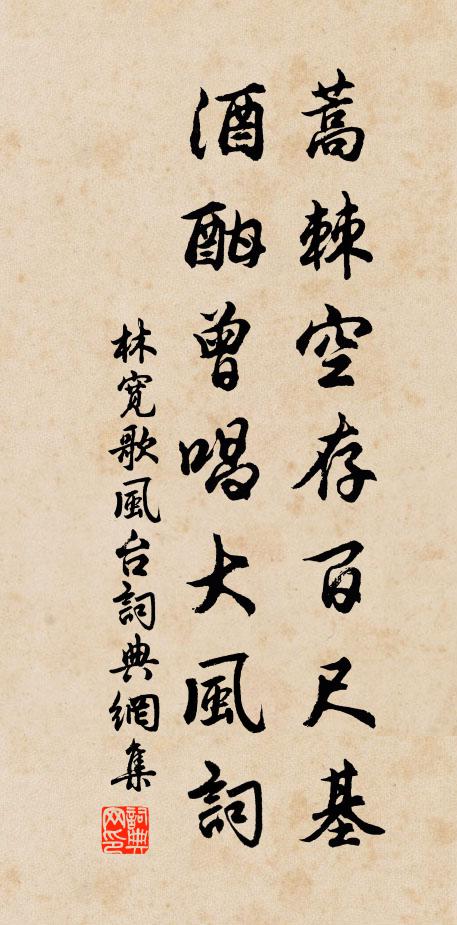 蒿棘空存百尺基
酒酣曾唱大風詞
林寬歌風台詞典網集
詞典网印